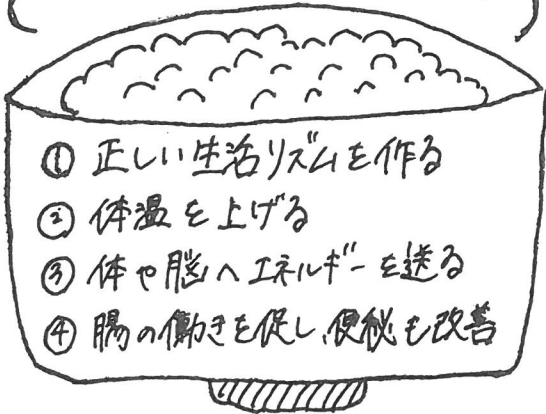 ① 正しい生活リズムを作る
② 体温を上げる
③ 体や脳へエネルギーを送る
④ 腸の働きを促し、便秘も改善